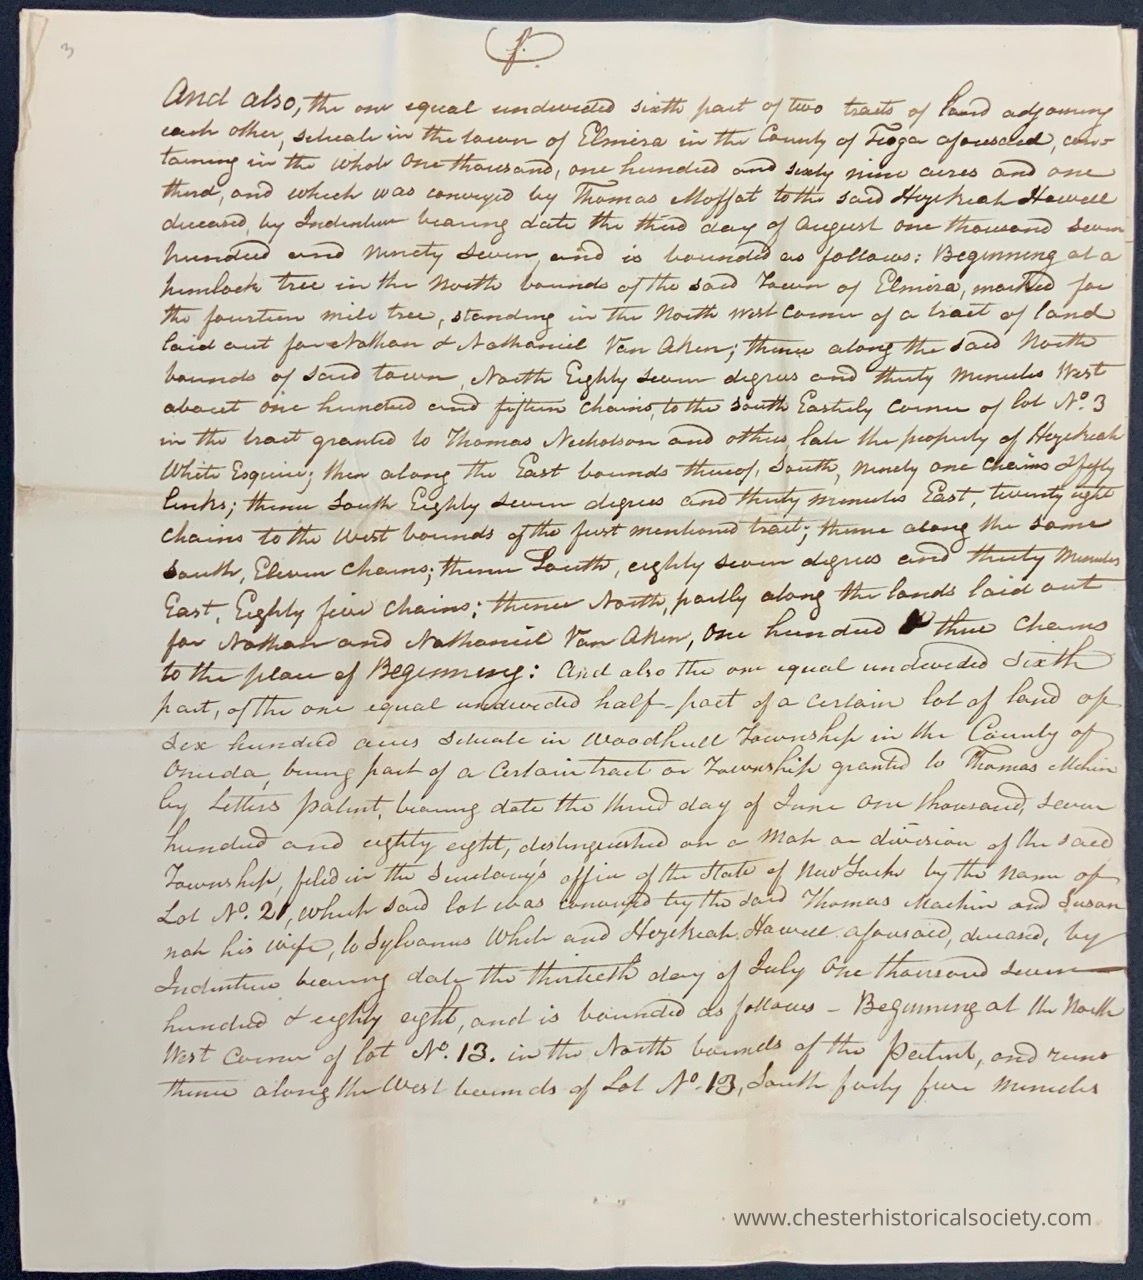 3
And also, the one equal undivided sixth part of two tracts of land adjoining
each other, situate in the town of Elmira in the County of Tioga aforesaid, con-
taining in the whole One thousand, one hundred and sixty nine acres and one
third, and which was conveyed by Thomas Moffat to the said Hezekiah Howell
deceased, by Indenture bearing date the third day of August one thousand seven
hundred and Ninety seven, and is bounded as follows: Beginning at a
hemlock tree in the North bounds of the said Town of Elmira, marked for
the fourteen mile tree, standing in the North west Corner of a tract of land
laid out for Nathan & Nathaniel Van Aken; thence along the said North
bounds of said town, North Eighty seven degrees and thirty Minutes West
about one hundred and fifteen Chains, to the South Easterly Corner of lot No. 3
in the tract granted to Thomas Nicholson and others, late the property of Hezekiah
White Esquire; then along the East bounds thereof, South, ninety one Chains & fifty
links; thence South Eighty seven degrees and thirty minutes East, twenty eight
Chains to the West bounds of the first mentioned tract; thence along the same
South, Eleven Chains; thence South, eighty seven degrees and thirty Minutes
East, Eighty five Chains; thence North, partly along the lands laid out
for Nathan and Nathaniel Van Aken, One hundred & three Chains
to the place of Beginning: And also the one equal undivided sixth
part, of the one equal undivided half-part of a certain lot of land of
Six hundred acres situate in Woodhull Township in the County of
Oneida, being part of a Certain tract or Township granted to Thomas Machin
by Letters patent, bearing date the third day of June One thousand, seven
hundred and eighty eight, distinguished on a Map or division of the said
Township, filed in the Secretary's office of the State of New York by the name of
Lot No. 21, which said lot was conveyed by the said Thomas Machin and Susan
nah his wife, to Sylvanus White and Hezekiah Howell aforesaid, deceased, by
Indenture bearing date the thirtieth day of July One thousand seven
hundred & eighty eight, and is bounded as follows - Beginning at the North
West Corner of lot No. 13. in the North bounds of the Patent, and runs
thence along the West bounds of Lot No. 13, South forty five Minutes
www.chesterhistoricalsociety.com